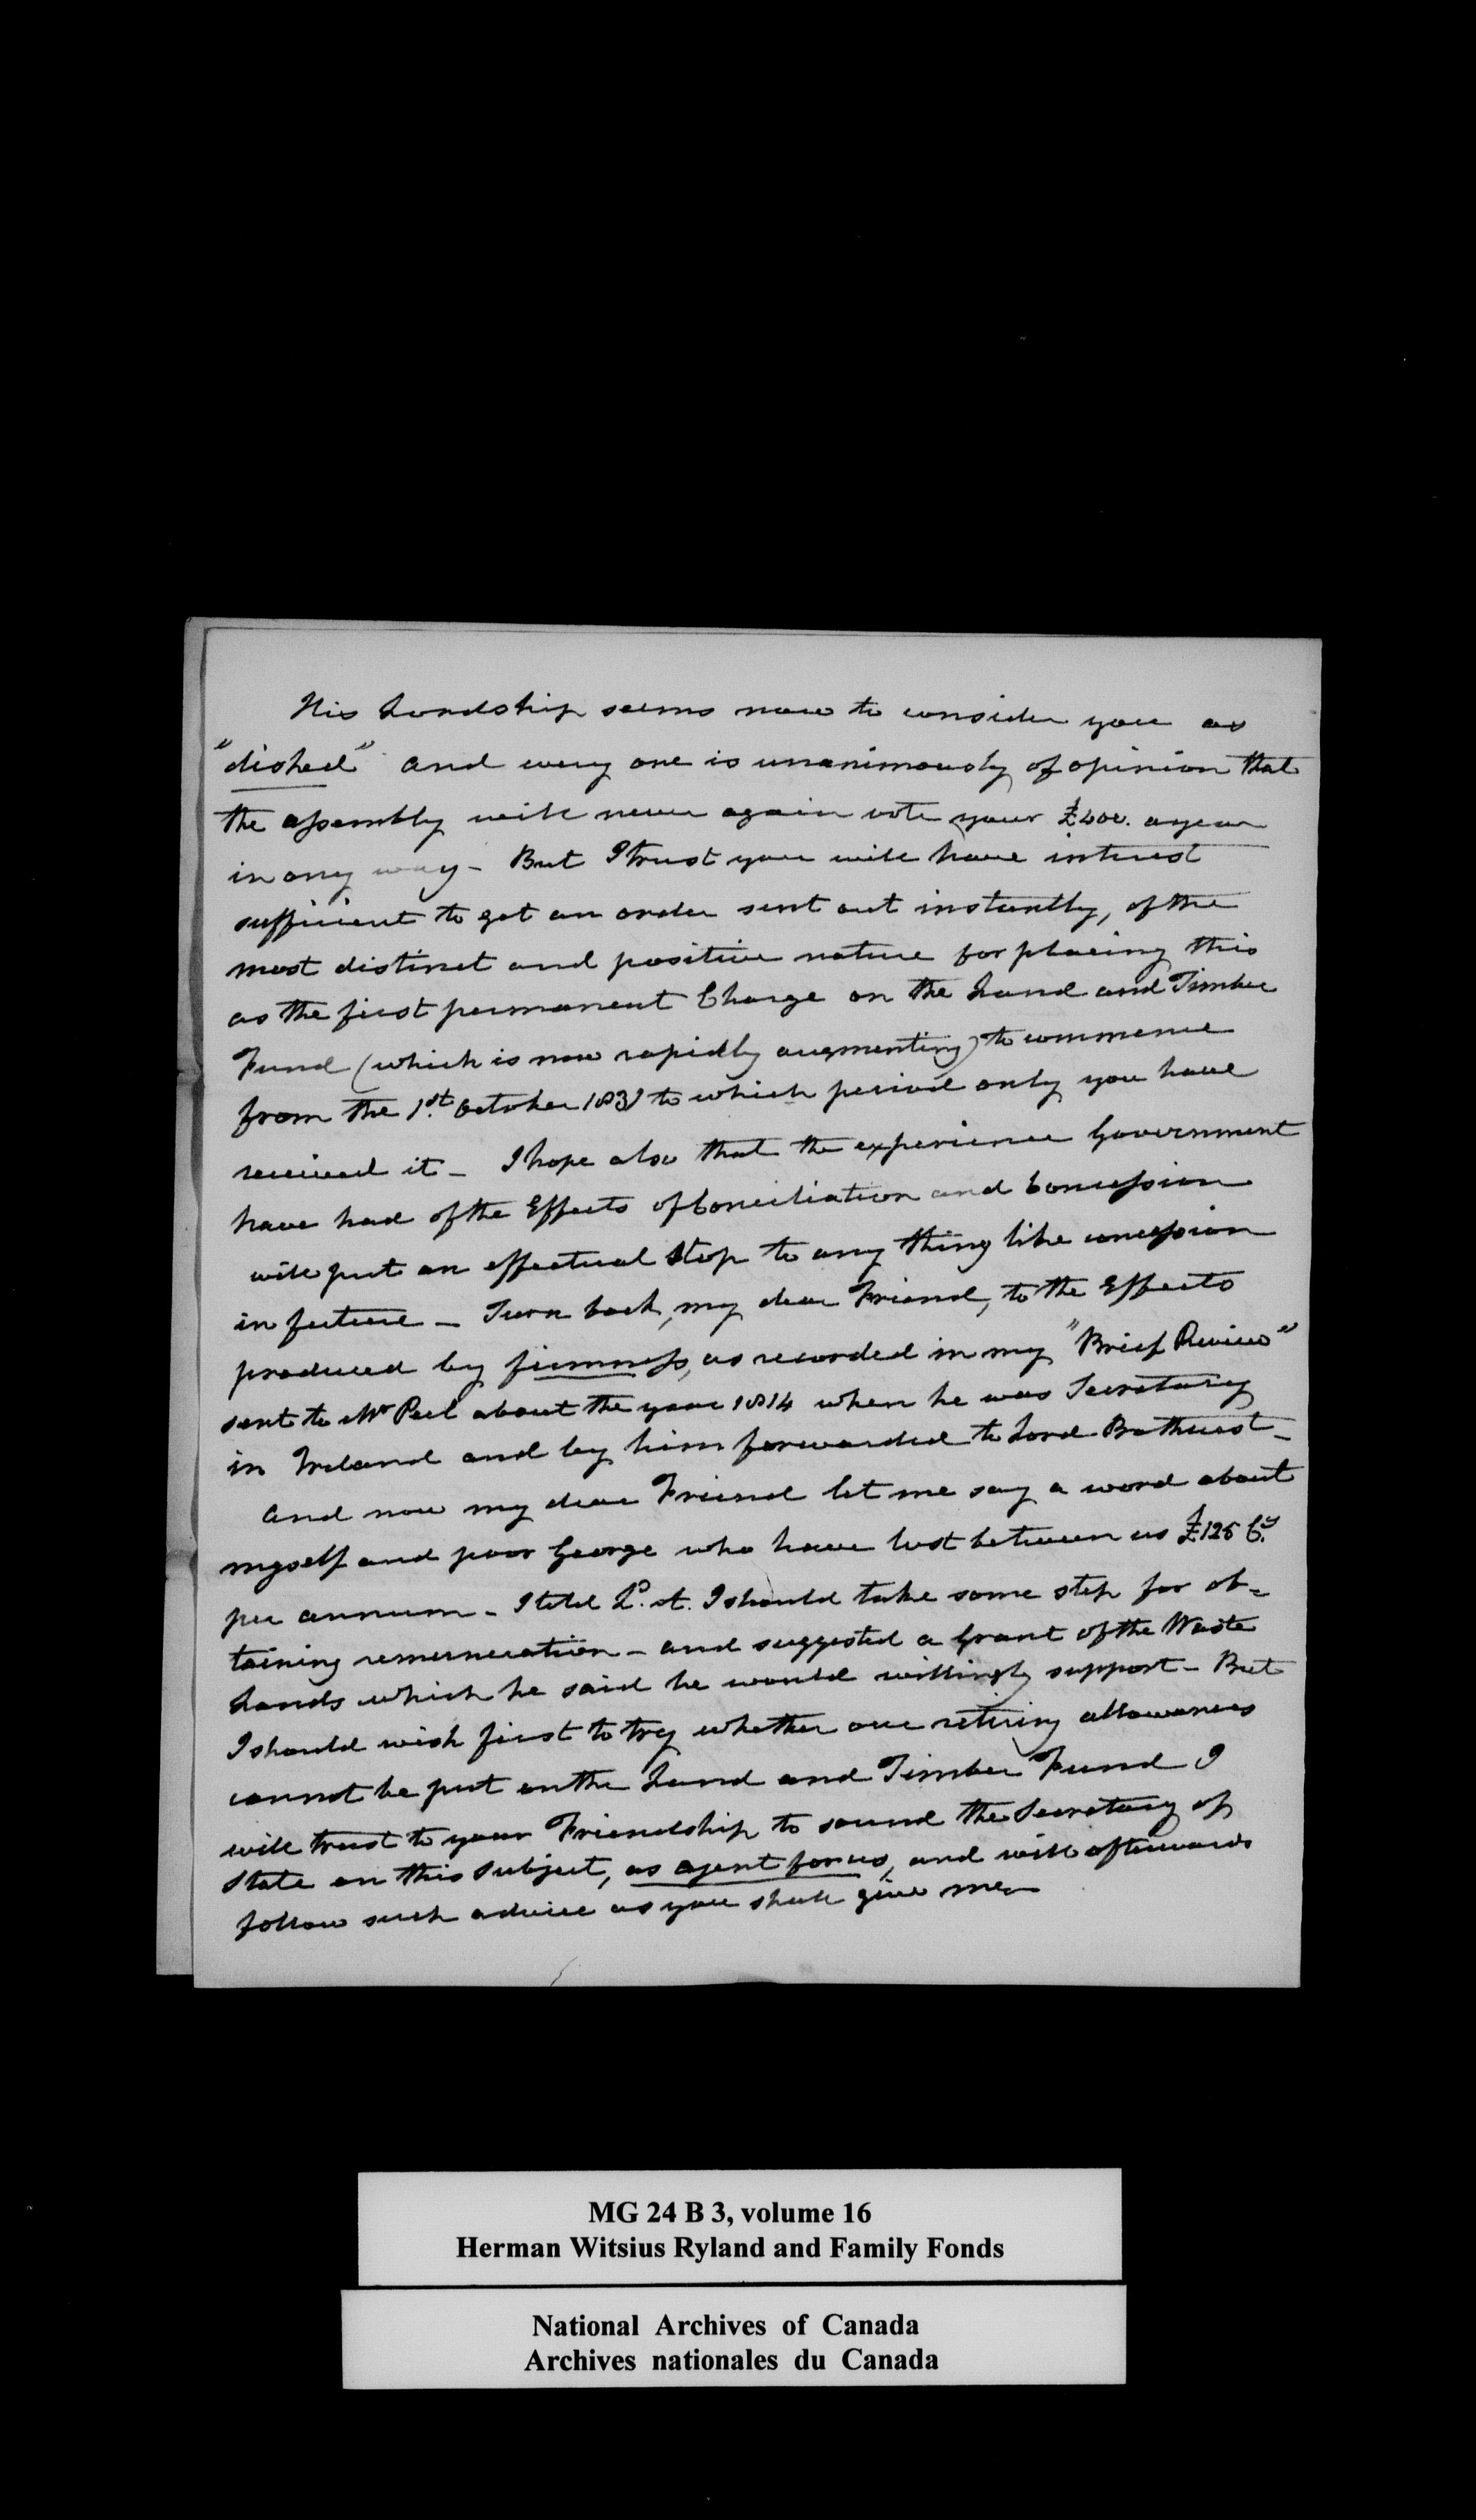 His Lordship seems now to consider you as
"dished" and every one is unanimously of opinion that
the assembly will never again vote your £400. a year
in any way – But I trust you will have interest
sufficient to get an order sent out instantly, of the
most distinct and positive nature for placing this
as the first permanent Charge on the Land and Timber
Fund (which is now rapidly augmenting) to commence
from the 1st October 1831 to which period only you have
received it – I hope also that the experience Government
have had of the Effects of Conciliation and Concession
will put an effectual stop to any thing like concession
in future – Turn back, my dear Friend, to the Effects
produced by firmness, as recorded in my "Brief Review"
sent to Mr Peel about the year 1814 when he was Secretary
in Ireland and by him forwarded to Lord Bathurst –
And now my dear Friend let me say a word about
myself and poor George who have lost between us £125 Cy
per annum – I told Ld. A. I should take some step for ob=
taining remuneration – and suggested a Grant of the Waste
Lands which he said he would willingly support – But
I should wish first to try whether our retiring allowances
cannot be put on the Land and Timber Fund I
will trust to your Friendship to sound the Secretary of
State on this subject, as agent for us, and will afterwards
follow such advice as you shall give me –
MG 24 B 3, volume 16
Herman Witsius Ryland and Family Fonds
National Archives of Canada
Archives nationales du Canada